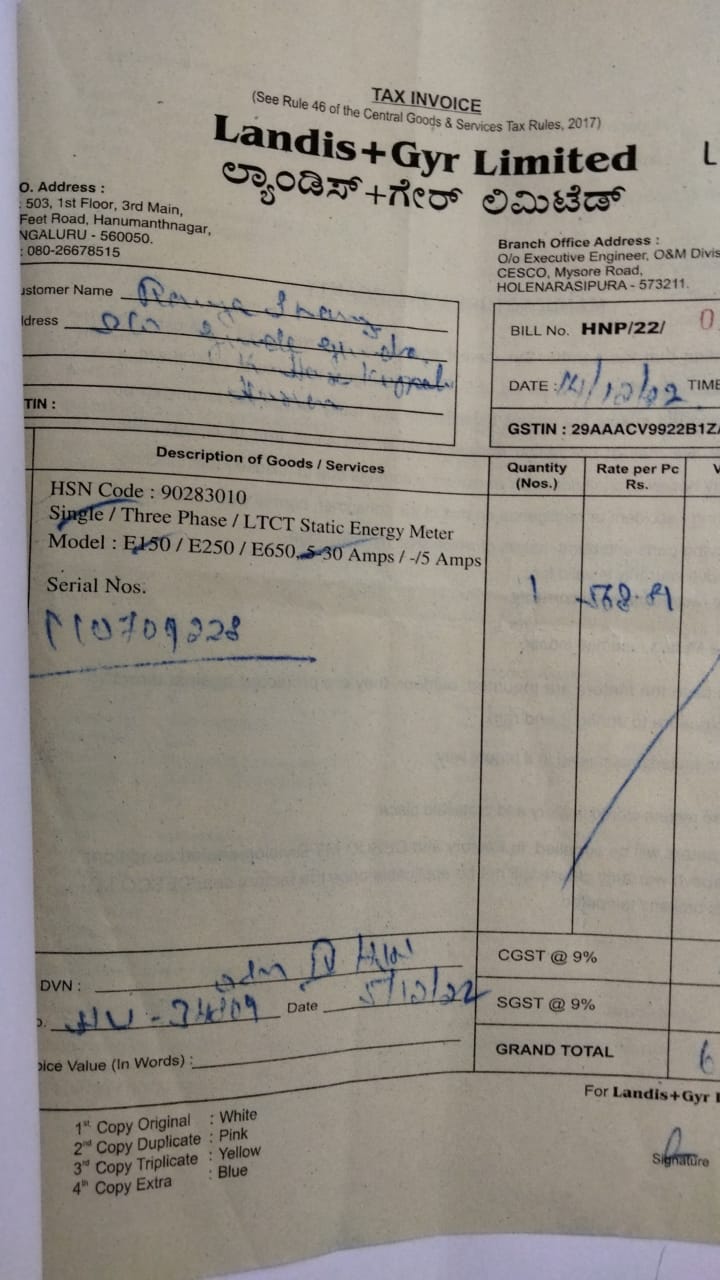 TAX INVOICE
(See Rule 46 of the Central Goods & Services Tax Rules, 2017)
Landis+Gyr Limited
L
ಲ್ಯಾಂಡಿಸ್+ಗೇರ್ ಲಿಮಿಟೆಡ್
O. Address :
503, 1st Floor, 3rd Main,
Feet Road, Hanumanthnagar,
NGALURU - 560050.
: 080-26678515
Branch Office Address :
O/o Executive Engineer, O&M Divis
CESCO, Mysore Road,
HOLENARASIPURA - 573211.
ustomer Name
ddress
TIN :
BILL No. HNP/22/ 0
DATE : TIME
GSTIN : 29AAACV9922B1Z
Description of Goods / Services
Quantity (Nos.)
Rate per Pc Rs.
V
HSN Code : 90283010
Single / Three Phase / LTCT Static Energy Meter
Model : E150 / E250 / E650, 5-30 Amps / -/5 Amps
Serial Nos.
1
568.81
DVN :
Date 5/12/22
oice Value (In Words) :
CGST @ 9%
SGST @ 9%
GRAND TOTAL 6
For Landis+Gyr
1st Copy Original : White
2nd Copy Duplicate : Pink
3rd Copy Triplicate : Yellow
4th Copy Extra : Blue
Signature